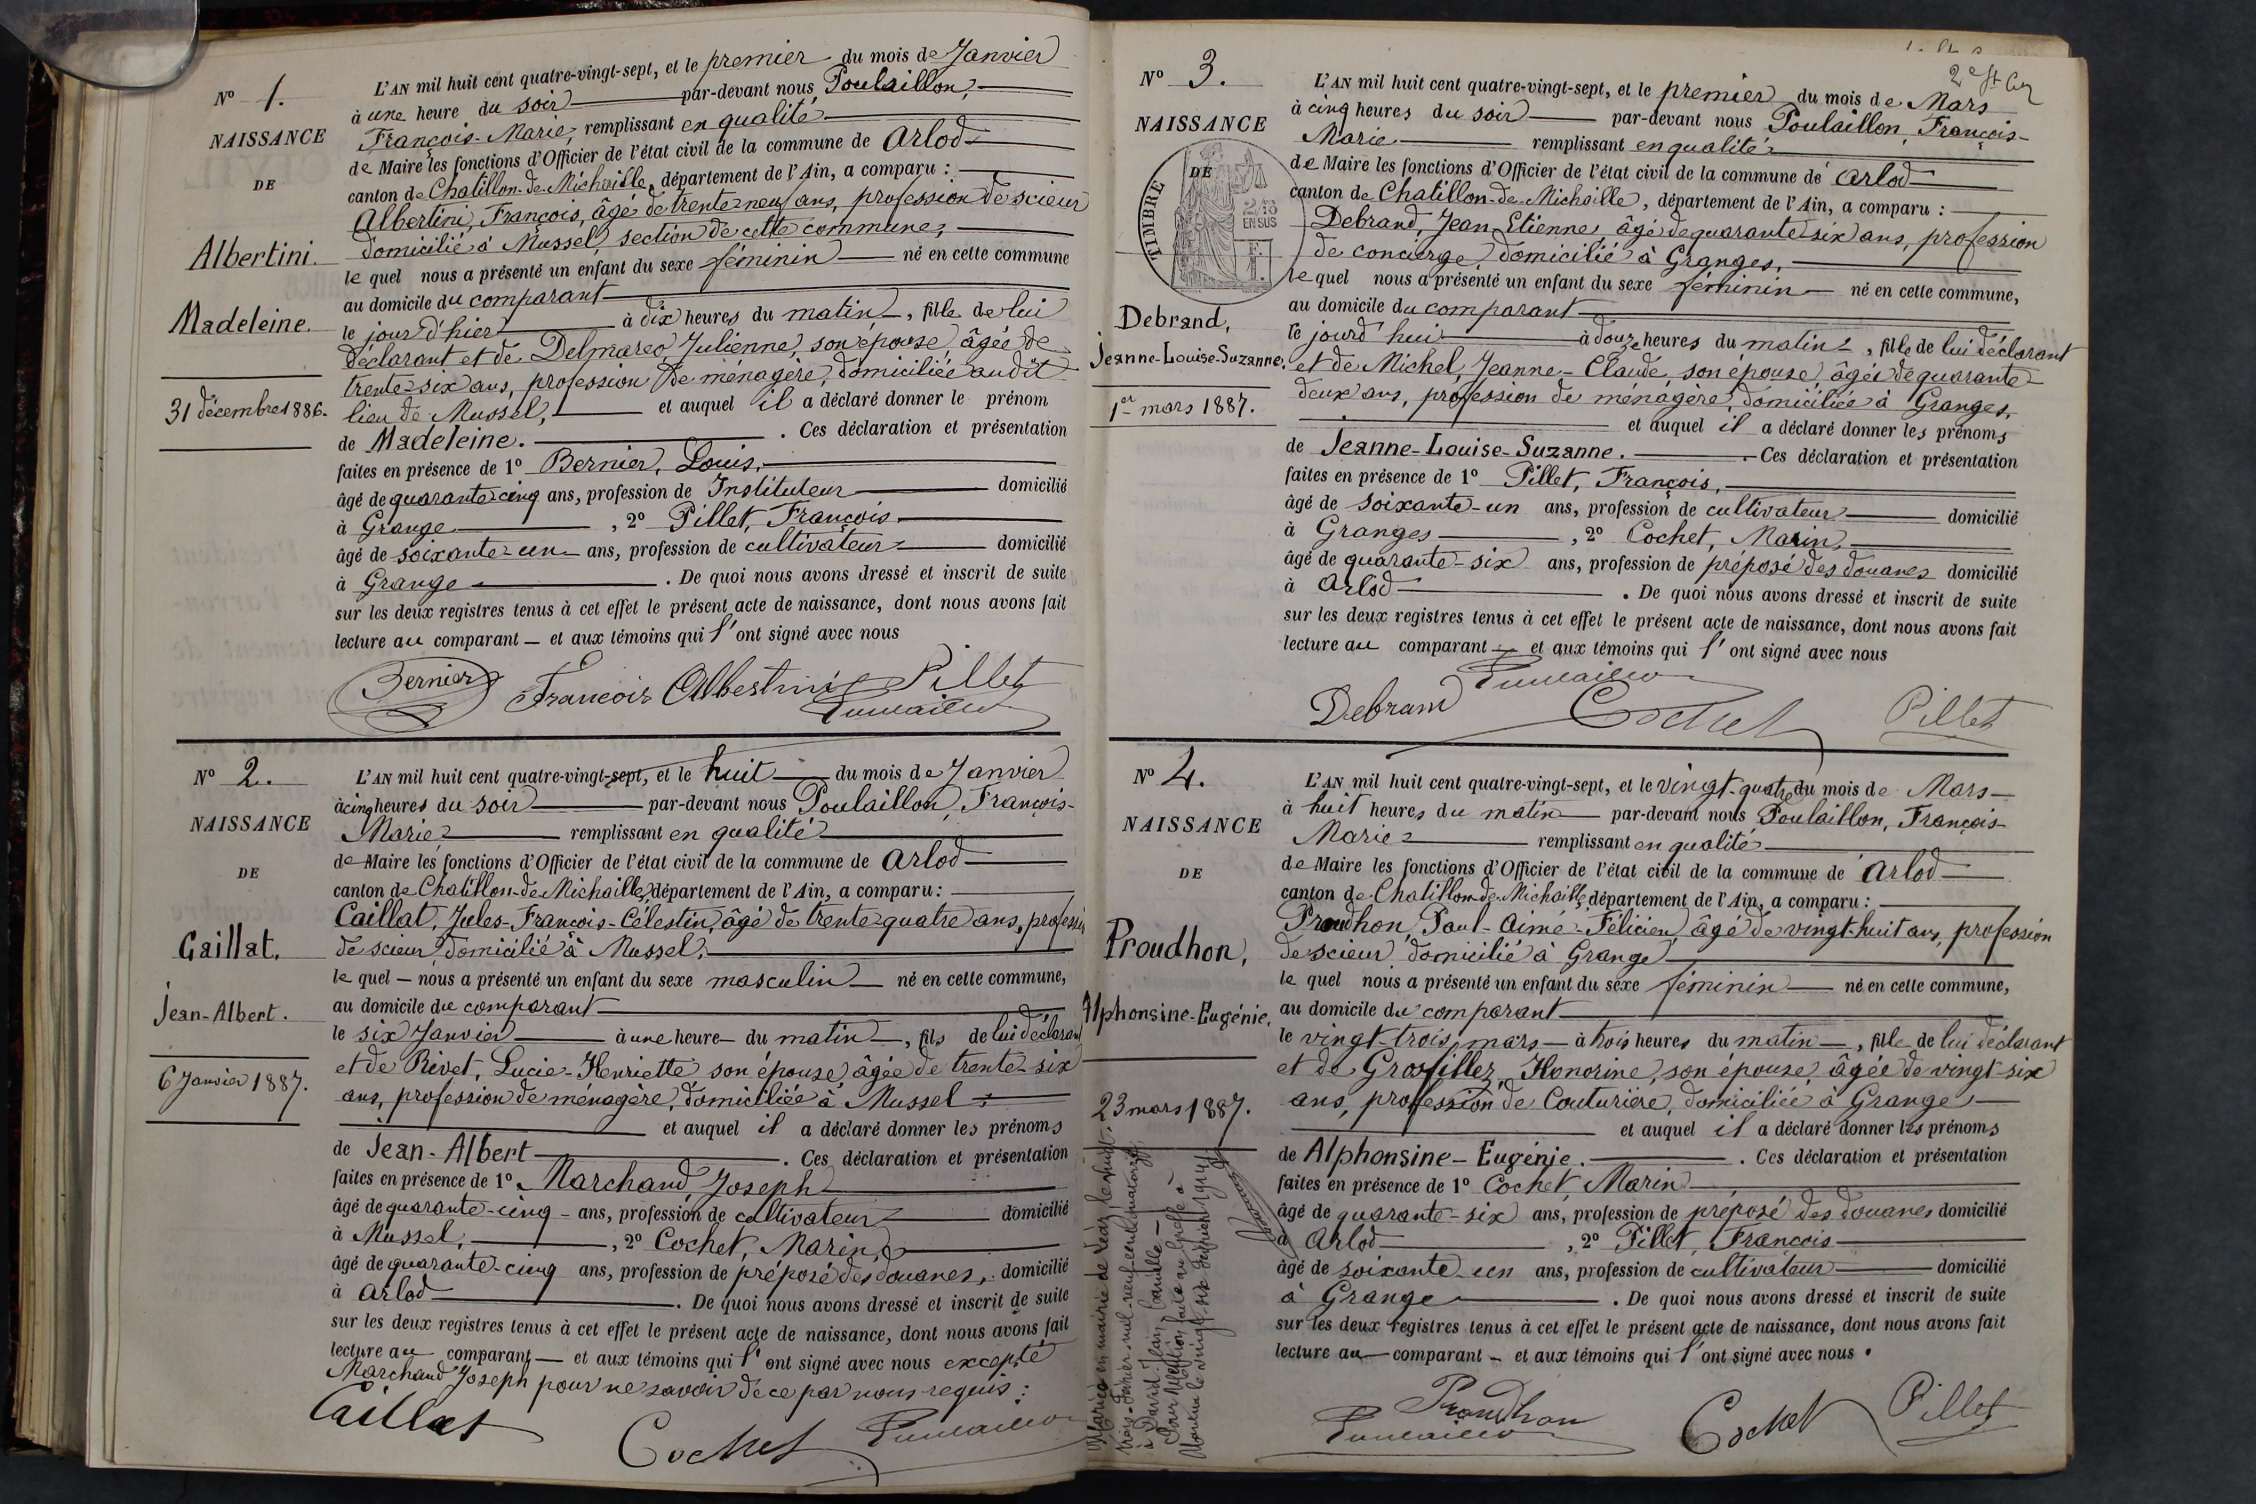 N° 1.
NAISSANCE
DE
Albertini.
Madeleine.
31 décembre 1886.
L'AN mil huit cent quatre-vingt-sept, et le premier du mois de Janvier
à une heure du soir par-devant nous Poulaillon,
François-Marie, remplissant en qualité
de Maire les fonctions d'Officier de l'état civil de la commune de Arlod
canton de Chatillon-de-Michaille, département de l'Ain, a comparu :
Albertini, François, âgé de trente-neuf ans, profession de scieur
domicilié à Mussel, section de cette commune,
le quel nous a présenté un enfant du sexe féminin né en cette commune
au domicile du comparant
le jour d'hier à dix heures du matin, fille de lui
déclarant et de Delmarco, Julienne, son épouse âgée de
trente-six ans, profession de ménagère, domiciliée au dit
lieu de Mussel, et auquel il a déclaré donner le prénom
de Madeleine. . Ces déclaration et présentation
faites en présence de 1° Bernier, Louis,
âgé de quarante-cinq ans, profession de Instituteur domicilié
à Grange , 2° Pillet, François
âgé de soixante-un ans, profession de cultivateur domicilié
à Grange . De quoi nous avons dressé et inscrit de suite
sur les deux registres tenus à cet effet le présent acte de naissance, dont nous avons fait
lecture au comparant — et aux témoins qui l'ont signé avec nous
Bernier François Albertini Pillet
Poulaillon
N° 2.
NAISSANCE
DE
Caillat,
Jean-Albert.
6 Janvier 1887.
L'AN mil huit cent quatre-vingt-sept, et le huit du mois de Janvier
à cinq heures du soir par-devant nous Poulaillon, François-
Marie remplissant en qualité
de Maire les fonctions d'Officier de l'état civil de la commune de Arlod
canton de Chatillon-de-Michaille, département de l'Ain, a comparu :
Caillat, Jules-François-Célestin, âgé de trente-quatre ans, profession
de scieur, domicilié à Mussel,
le quel — nous a présenté un enfant du sexe masculin né en cette commune,
au domicile du comparant
le six Janvier à une heure du matin, fils de lui déclarant
et de Rivet, Lucie-Henriette son épouse, âgée de trente-six
ans, profession de ménagère, domiciliée à Mussel
et auquel il a déclaré donner les prénoms
de Jean-Albert . Ces déclaration et présentation
faites en présence de 1° Marchand Joseph
âgé de quarante-cinq ans, profession de cultivateur domicilié
à Mussel, , 2° Cochet, Marin,
âgé de quarante-cinq ans, profession de préposé des douanes, domicilié
à Arlod . De quoi nous avons dressé et inscrit de suite
sur les deux registres tenus à cet effet le présent acte de naissance, dont nous avons fait
lecture au comparant — et aux témoins qui l'ont signé avec nous excepté
Marchand Joseph pour ne savoir de ce par nous requis :
Caillat Cochet Poulaillon
N° 3.
NAISSANCE
DE
TIMBRE
2/10
EN SUS
Debrand,
Jeanne-Louise-Suzanne.
1er mars 1887.
L'AN mil huit cent quatre-vingt-sept, et le premier du mois de Mars
à cinq heures du soir par-devant nous Poulaillon, François-
Marie remplissant en qualité
de Maire les fonctions d'Officier de l'état civil de la commune de Arlod
canton de Chatillon-de-Michaille, département de l'Ain, a comparu :
Debrand, Jean-Etienne, âgé de quarante-six ans, profession
de concierge domicilié à Granges,
le quel nous a présenté un enfant du sexe féminin né en cette commune,
au domicile du comparant
le jourd'hui à douze heures du matin, fille de lui déclarant
et de Michel, Jeanne-Claude, son épouse, âgée de quarante-
deux ans, profession de ménagère, domiciliée à Granges,
et auquel il a déclaré donner les prénoms
de Jeanne-Louise-Suzanne. Ces déclaration et présentation
faites en présence de 1° Pillet, François,
âgé de soixante-un ans, profession de cultivateur domicilié
à Granges , 2° Cochet, Marin,
âgé de quarante-six ans, profession de préposé des douanes domicilié
à Arlod . De quoi nous avons dressé et inscrit de suite
sur les deux registres tenus à cet effet le présent acte de naissance, dont nous avons fait
lecture au comparant — et aux témoins qui l'ont signé avec nous
Poulaillon
Debrand Cochet Pillet
N° 4.
NAISSANCE
DE
Proudhon,
Alphonsine-Eugénie.
23 mars 1887.
Mariée en mairie de le huit
Février mil-neuf-cent-quatorze
à David Jean Camille
L'AN mil huit cent quatre-vingt-sept, et le vingt-quatre du mois de Mars
à huit heures du matin par-devant nous Poulaillon, François-
Marie remplissant en qualité
de Maire les fonctions d'Officier de l'état civil de la commune de Arlod
canton de Chatillon-de-Michaille, département de l'Ain, a comparu :
Proudhon, Paul-Aimé-Félicien, âgé de vingt-huit ans, profession
de scieur, domicilié à Grange
le quel nous a présenté un enfant du sexe féminin né en cette commune,
au domicile du comparant
le vingt-trois mars à trois heures du matin, fille de lui déclarant
et de Grosfillez, Honorine, son épouse, âgée de vingt-six
ans, profession de Couturière, domiciliée à Grange
et auquel il a déclaré donner les prénoms
de Alphonsine-Eugénie. . Ces déclaration et présentation
faites en présence de 1° Cochet, Marin
âgé de quarante-six ans, profession de préposé des douanes domicilié
à Arlod , 2° Pillet, François
âgé de soixante-un ans, profession de cultivateur domicilié
à Grange . De quoi nous avons dressé et inscrit de suite
sur les deux registres tenus à cet effet le présent acte de naissance, dont nous avons fait
lecture au comparant — et aux témoins qui l'ont signé avec nous.
Proudhon
Poulaillon Cochet Pillet